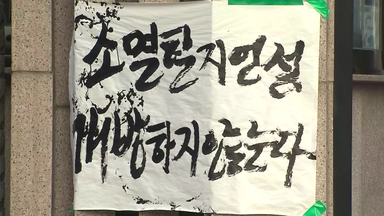 소멸될지언정
개방하지않는다